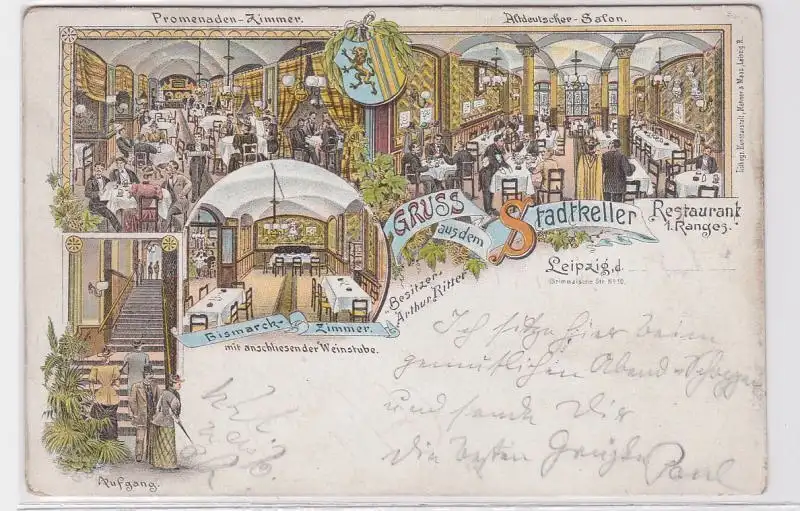 Promenaden-Zimmer.
Altdeutscher-Salon.
GRUSS
aus dem
Stadtkeller
Restaurant
1. Ranges.
Besitzer
Arthur Ritter
Leipzig, d.
Grimmaische Str. No 10.
Bismarck-Zimmer.
mit anschliesender Weinstube.
Aufgang.
Ich sitze hier beim
gemütlichen Abend-Schoppen
und sende Dir
die besten Grüße Paul